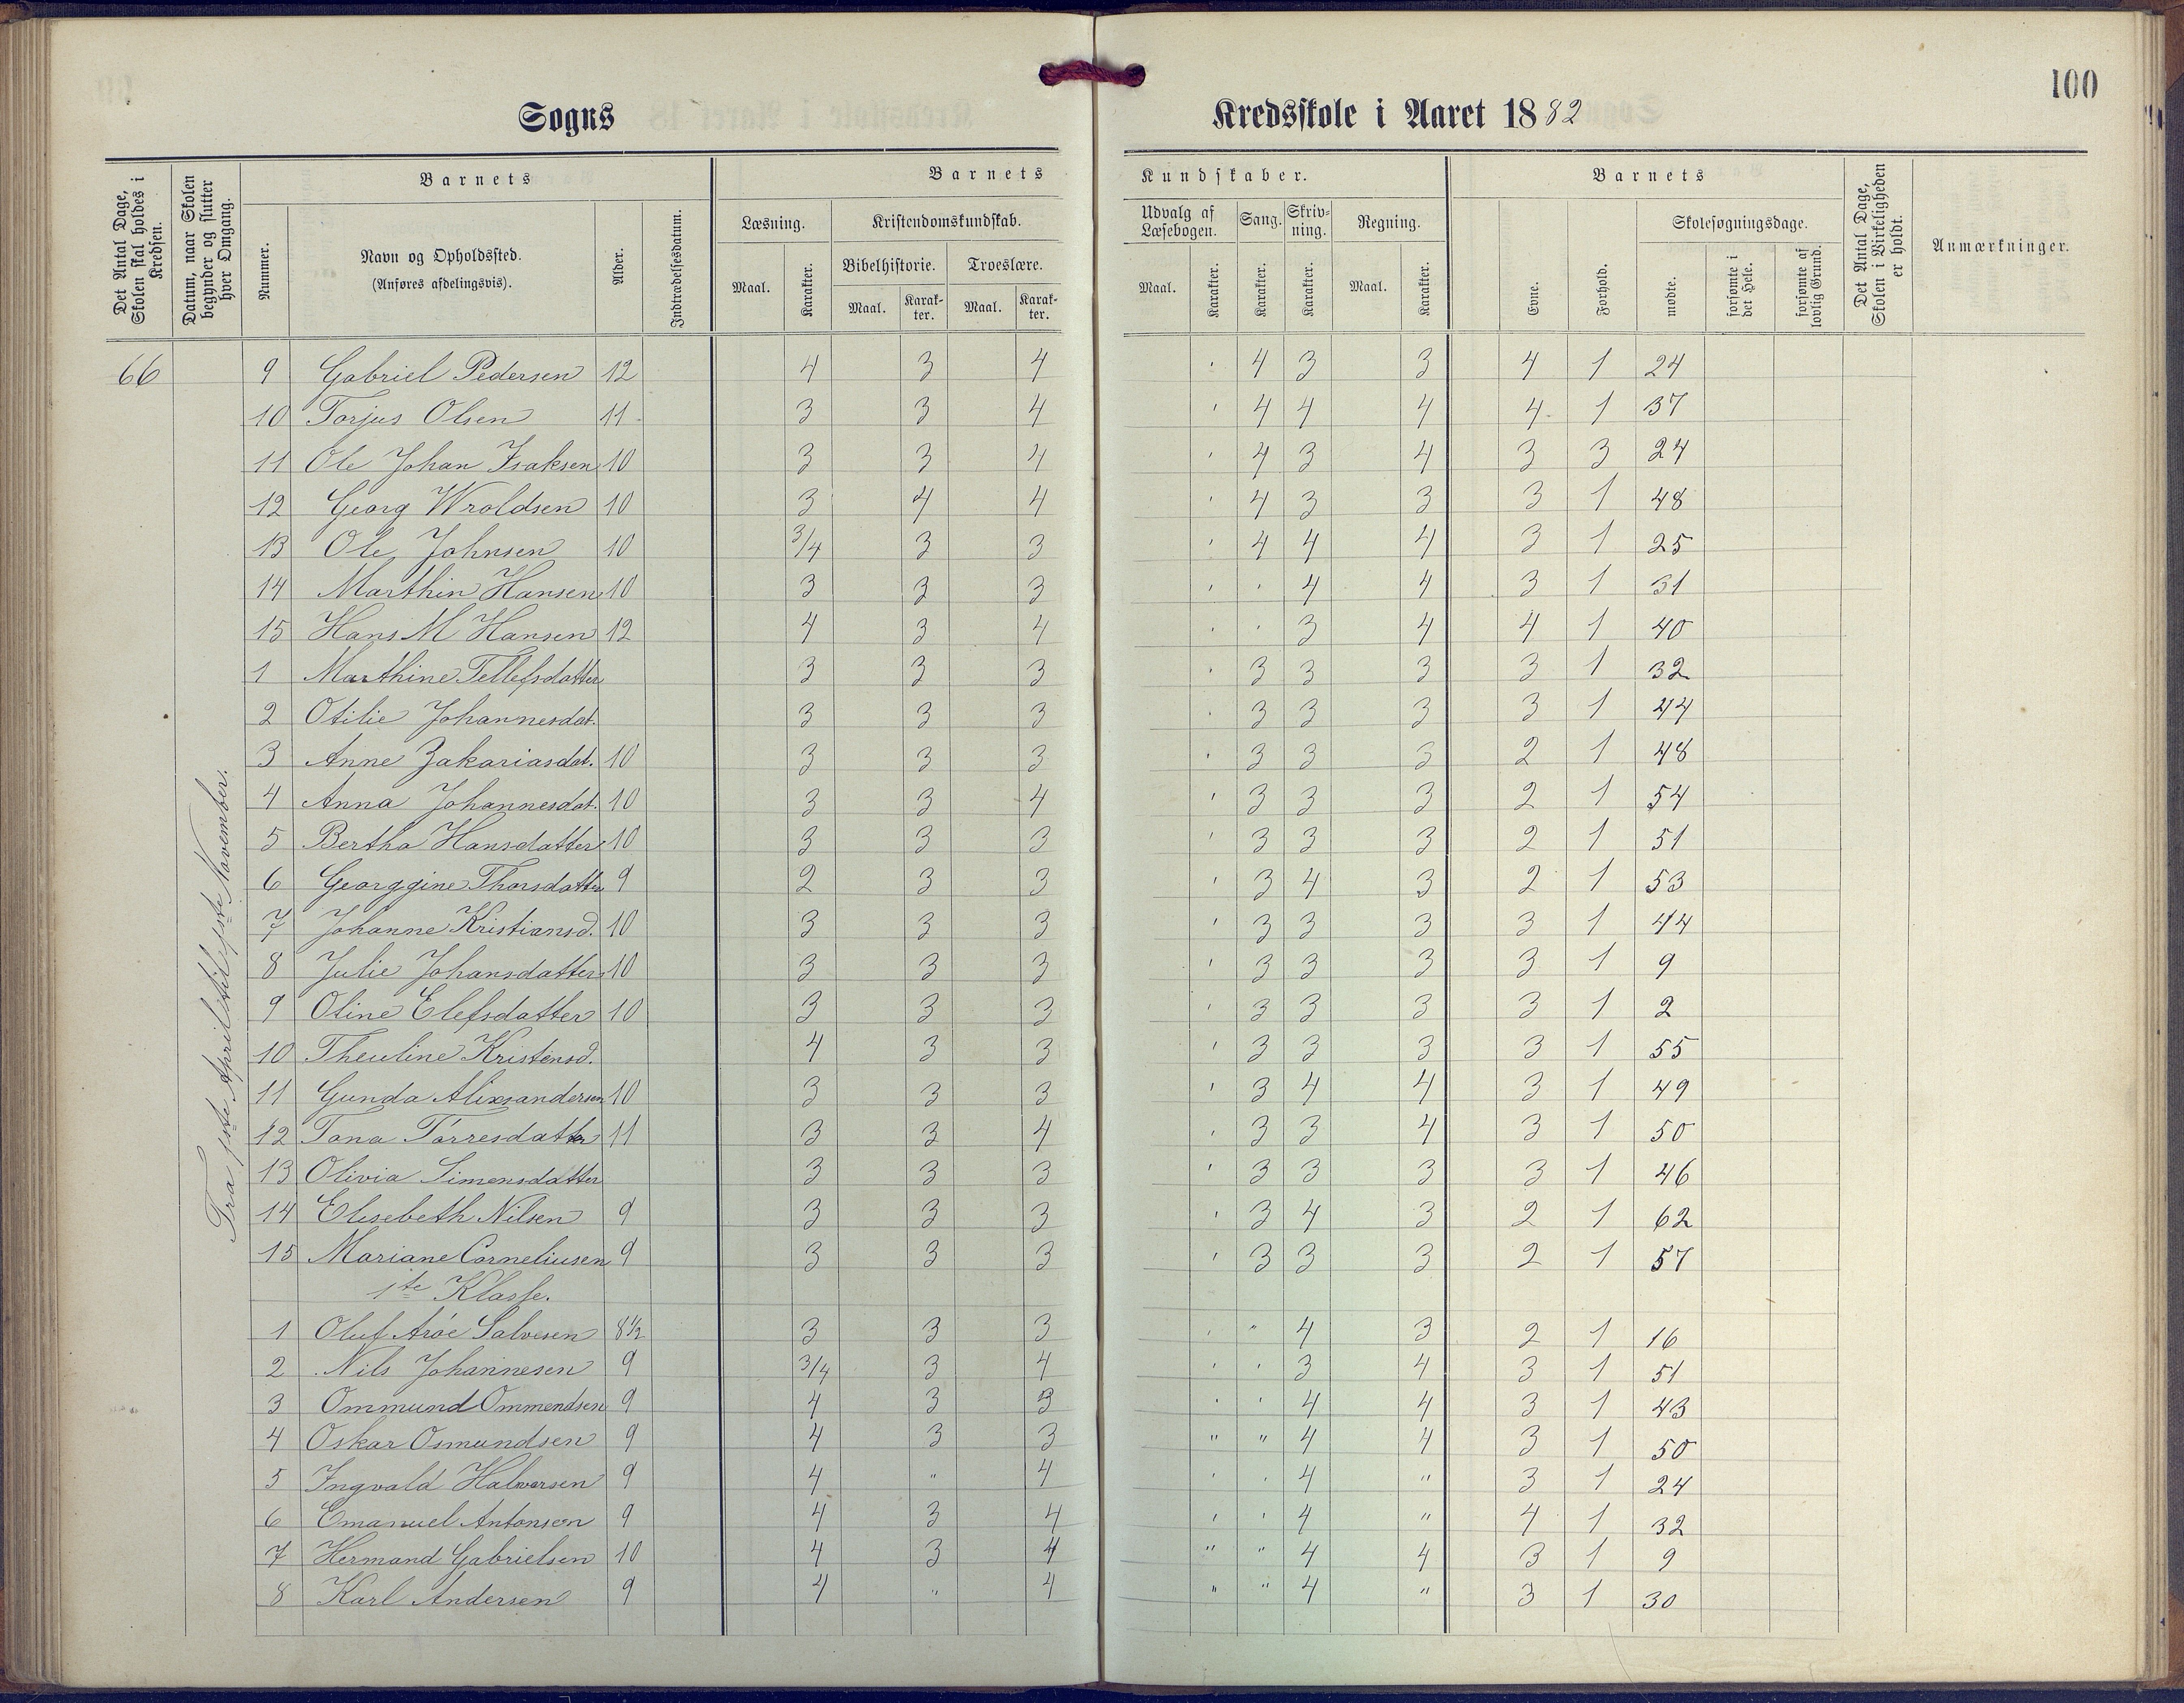 100
Sogns Kredsskole i Aaret 1882
Det Antal Dage, Skolen skal holdes i Kredsen.
Datum, naar Skolen begynder og slutter hver Omgang.
Barnets
Nummer.
Navn og Opholdssted.
(Anføres afdelingsvis).
Alder.
Indtrædelsesdatum.
Barnets Kundskaber.
Læsning.
Maal.
Karakter.
Kristendomskundskab.
Bibelhistorie.
Maal.
Karakter.
Troeslære.
Maal.
Karakter.
Udvalg af Læsebogen.
Maal.
Karakter.
Sang.
Karakter.
Skrivning.
Karakter.
Regning.
Maal.
Karakter.
Barnets
Evne.
Forhold.
Skolesøgningsdage.
mødte.
forsømte i det Hele.
forsømte af lovlig Grund.
Det Antal Dage, Skolen i Virkeligheden er holdt.
Anmærkninger.
66
Fra 1ste April til 1ste November.
9 Gabriel Pedersen 12 4 3 4 ' 4 3 3 4 1 24
10 Torjus Olsen 11 3 3 4 ' 4 4 4 4 1 37
11 Ole Johan Isaksen 10 3 3 4 ' 4 3 4 3 3 24
12 Georg Wroldsen 10 3 4 4 ' 4 3 3 3 1 48
13 Ole Johnsen 10 3/4 3 3 ' 4 4 4 3 1 25
14 Marthin Hansen 10 3 3 3 ' ' 4 4 3 1 31
15 Hans M Hansen 12 4 3 4 ' ' 3 4 4 1 40
1 Marthine Tellefsdatter 3 3 3 ' 3 3 3 3 1 32
2 Otilie Johannesdat. 3 3 3 ' 3 3 3 3 1 44
3 Anne Zakariasdat. 10 3 3 3 ' 3 3 3 2 1 48
4 Anna Johannesdat. 10 3 3 4 ' 3 3 3 2 1 54
5 Bertha Hansdatter 10 3 3 3 ' 3 3 3 2 1 51
6 Georggine Thorsdatter 9 2 3 3 ' 3 4 3 2 1 53
7 Johanne Kristiansd. 10 3 3 3 ' 3 3 3 3 1 44
8 Julie Johansdatter 10 3 3 3 ' 3 3 3 3 1 9
9 Oline Elefsdatter 10 3 3 3 ' 3 3 3 3 1 2
10 Theuline Kristensd. 4 3 3 ' 3 3 3 3 1 55
11 Gunda Alixsandersen 10 3 3 3 ' 3 4 4 3 1 49
12 Tona Torresdatter 11 3 3 4 ' 3 3 4 3 1 50
13 Olivia Simensdatter 3 3 3 ' 3 3 3 3 1 46
14 Elisebeth Nilsen 9 3 3 3 ' 3 4 3 2 1 62
15 Mariane Corneliusen 9 3 3 3 ' 3 3 3 2 1 57
1te Klasse.
1 Oluf Arøe Salvesen 8½ 3 3 3 ' " 4 3 2 1 16
2 Nils Johannesen 9 3/4 3 4 ' ' 3 4 3 1 51
3 Ommund Ommendsen 9 4 3 3 ' ' 4 4 3 1 43
4 Oskar Osmundsen 9 4 3 3 " " 4 4 3 1 50
5 Ingvald Halvorsen 9 4 " 4 ' ' 4 " 3 1 24
6 Emanuel Antonsen 9 4 3 4 ' ' 4 " 4 1 32
7 Hermand Gabrielsen 10 4 3 4 " " 4 4 3 1 9
8 Karl Andersen 9 4 " 4 " " 4 " 3 1 30